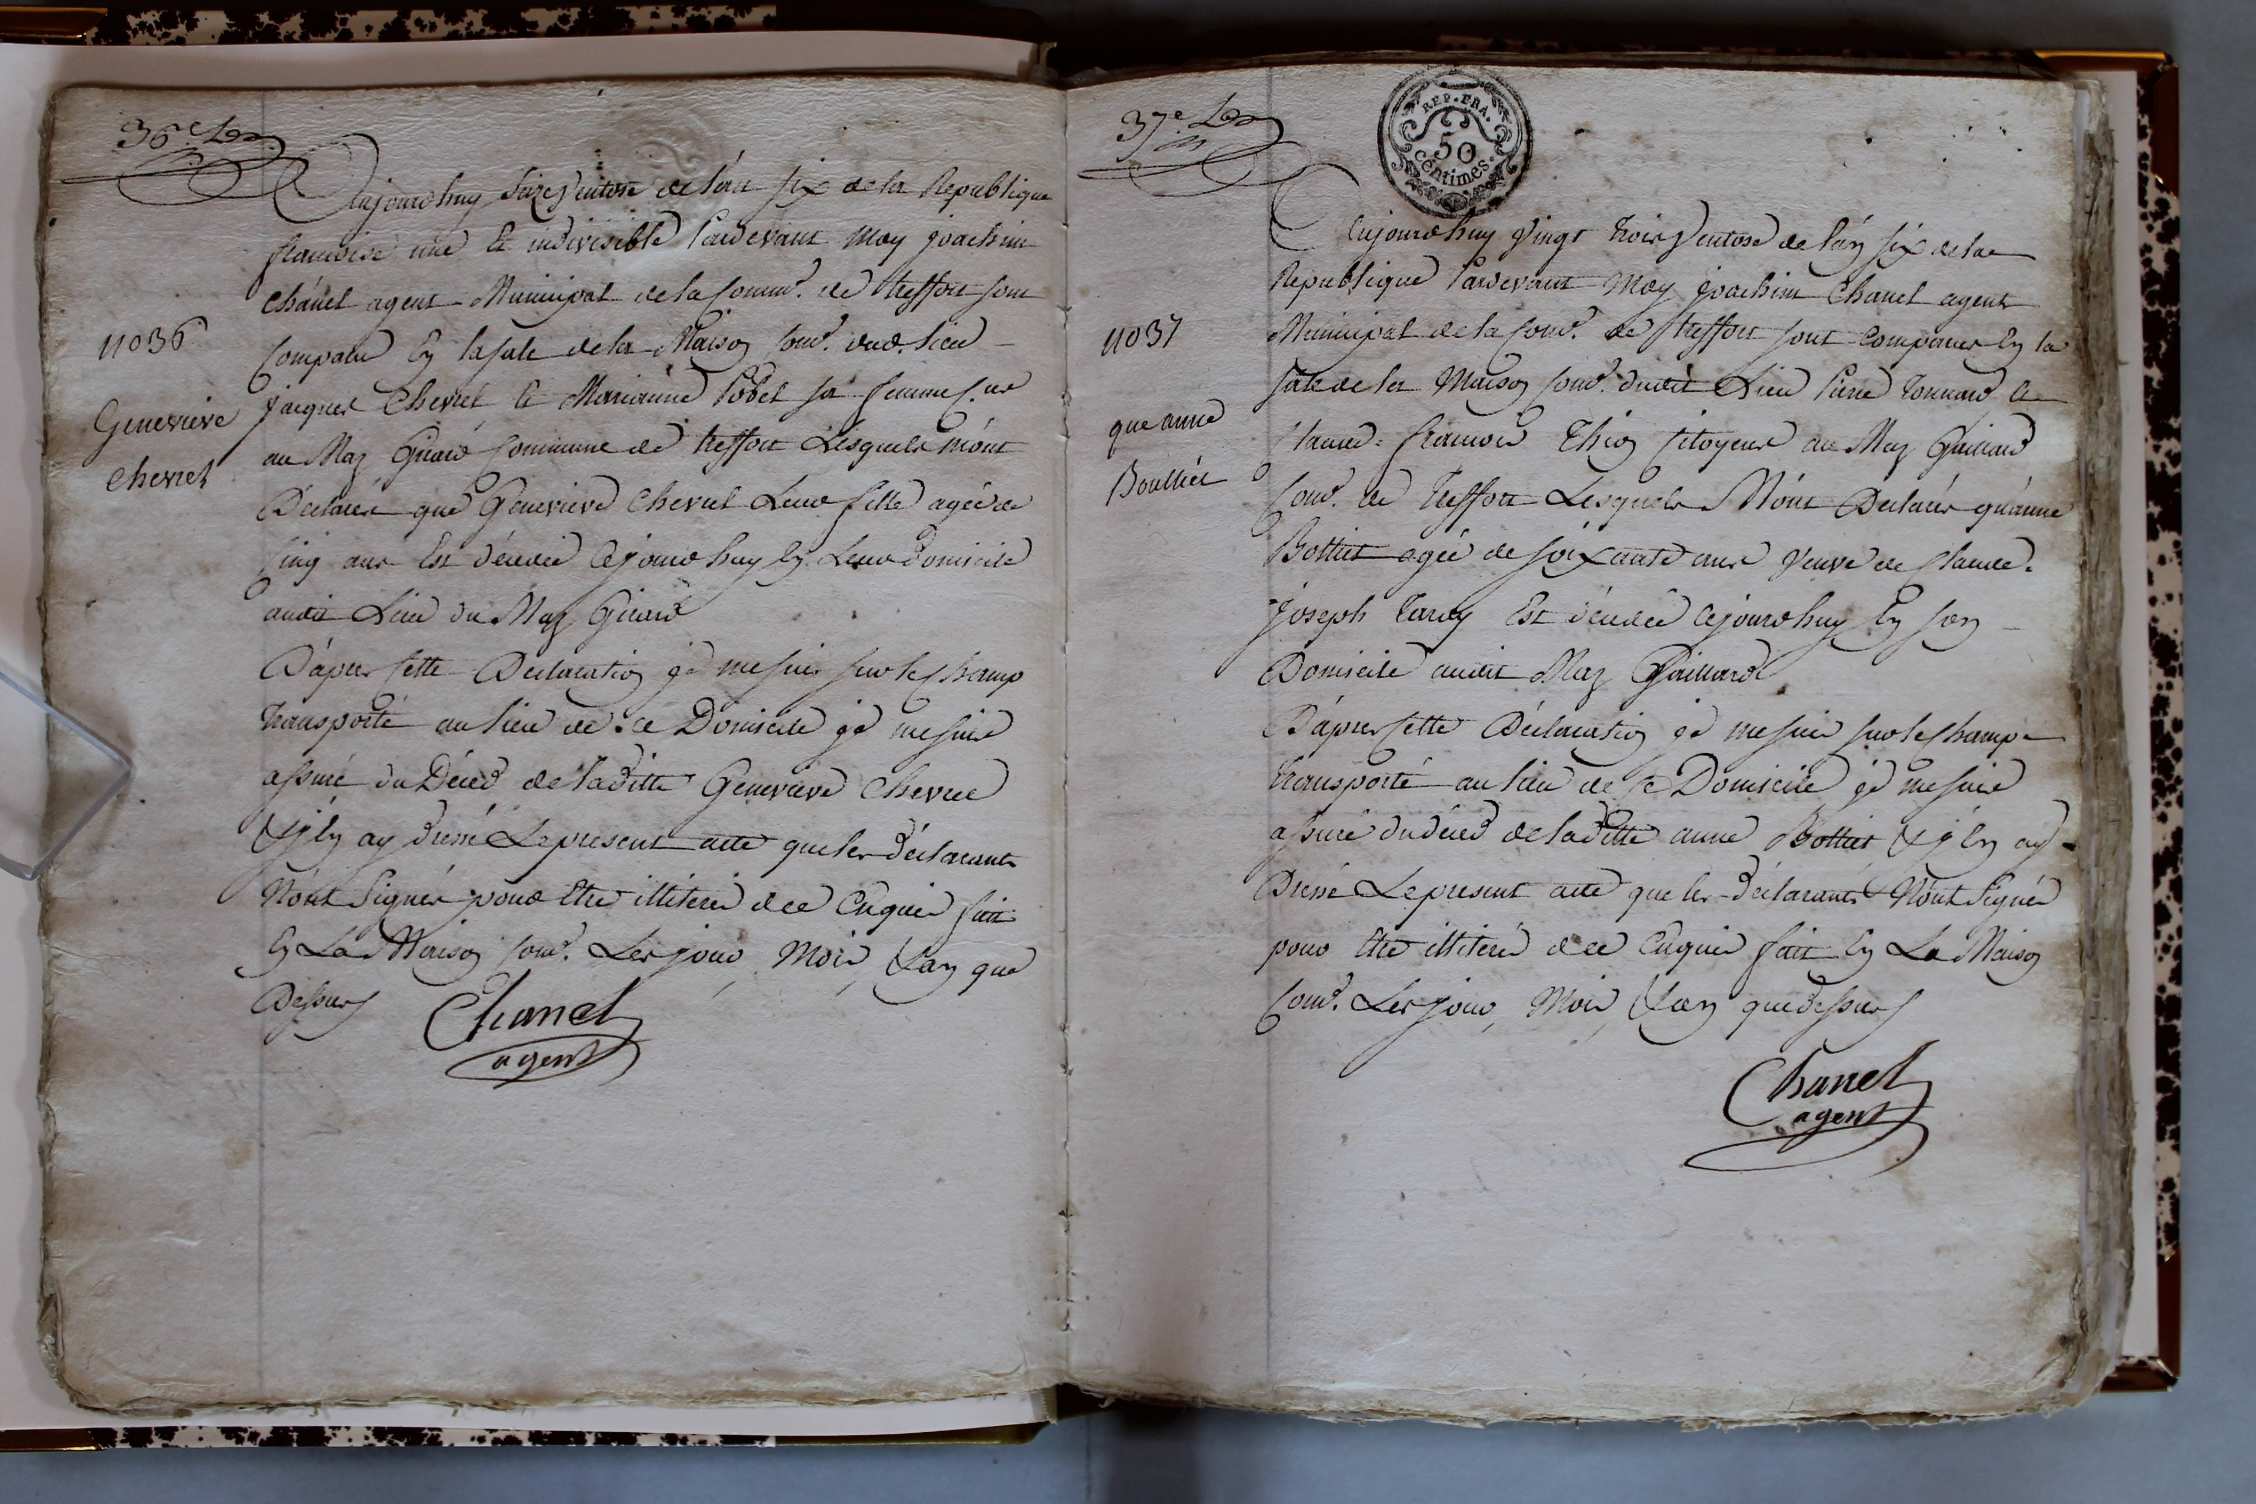 36e
Aujourdhuy Seize Ventose de l'an six de la Republique
francoise une Et indivisible Pardevant Moy joachim
Chanel agent Municipal de la Comm.e de treffort sont
Comparu En la sale de la Maison Com.e dud. lieu
jacques Chevret Et Marianne Pobel sa femme
au Maz Girard Commune de treffort Lesquels m'ont
Déclarér que Genevieve Chevret Leur fille agée de
Cinq ans Est décedée Cejourdhuy En Leur domicile
audit Lieu du Maz Girard
D'apres Cette Declaration je me suis sur le Champ
transporté au lieu de ce Domicile je me suis
assuré du Décés de laditte Genevieve Chevret
Et j'en ay dressé Le present acte que les déclarants
N'ont Signér pour Etre illiterés de ce Enquis fait
En La Maison Com.e Les jour, Mois, Et an que
Dessus
Chanel
agent
N036
Genevieve
Chevret
37e
REP. FRA.
50
centimes.
Aujourdhuy Vingt trois Ventose de l'an six de la
Republique Pardevant Moy joachim Chanel agent
Municipal de la Com.e de treffort sont Comparues En la
sale de la Maison Com.e dudit Lieu Pierre Tonnard Et
Claude-francois Thion Citoyens au Maz Gaillard
Com.e de treffort Lesquels M'ont Declarér qu'anne
Bottiet agée de soixante ans Veuve de Claude-
Joseph Tardy Est décedée Cejourdhuy En son
Domicile audit Maz Gaillard
D'apres Cette Déclaration je me suis sur le Champ
transporté au lieu de Ce Domicile je me suis
assuré du décés de laditte anne Bottiet Et j'En ay
Dressé Le present acte que les déclarants N'ont Signér
pour Etre illiterés de ce Enquis fait En La Maison
Com.e Les jour, Mois, Et an que dessus
Chanel
agent
N037
que anne
Boulliet